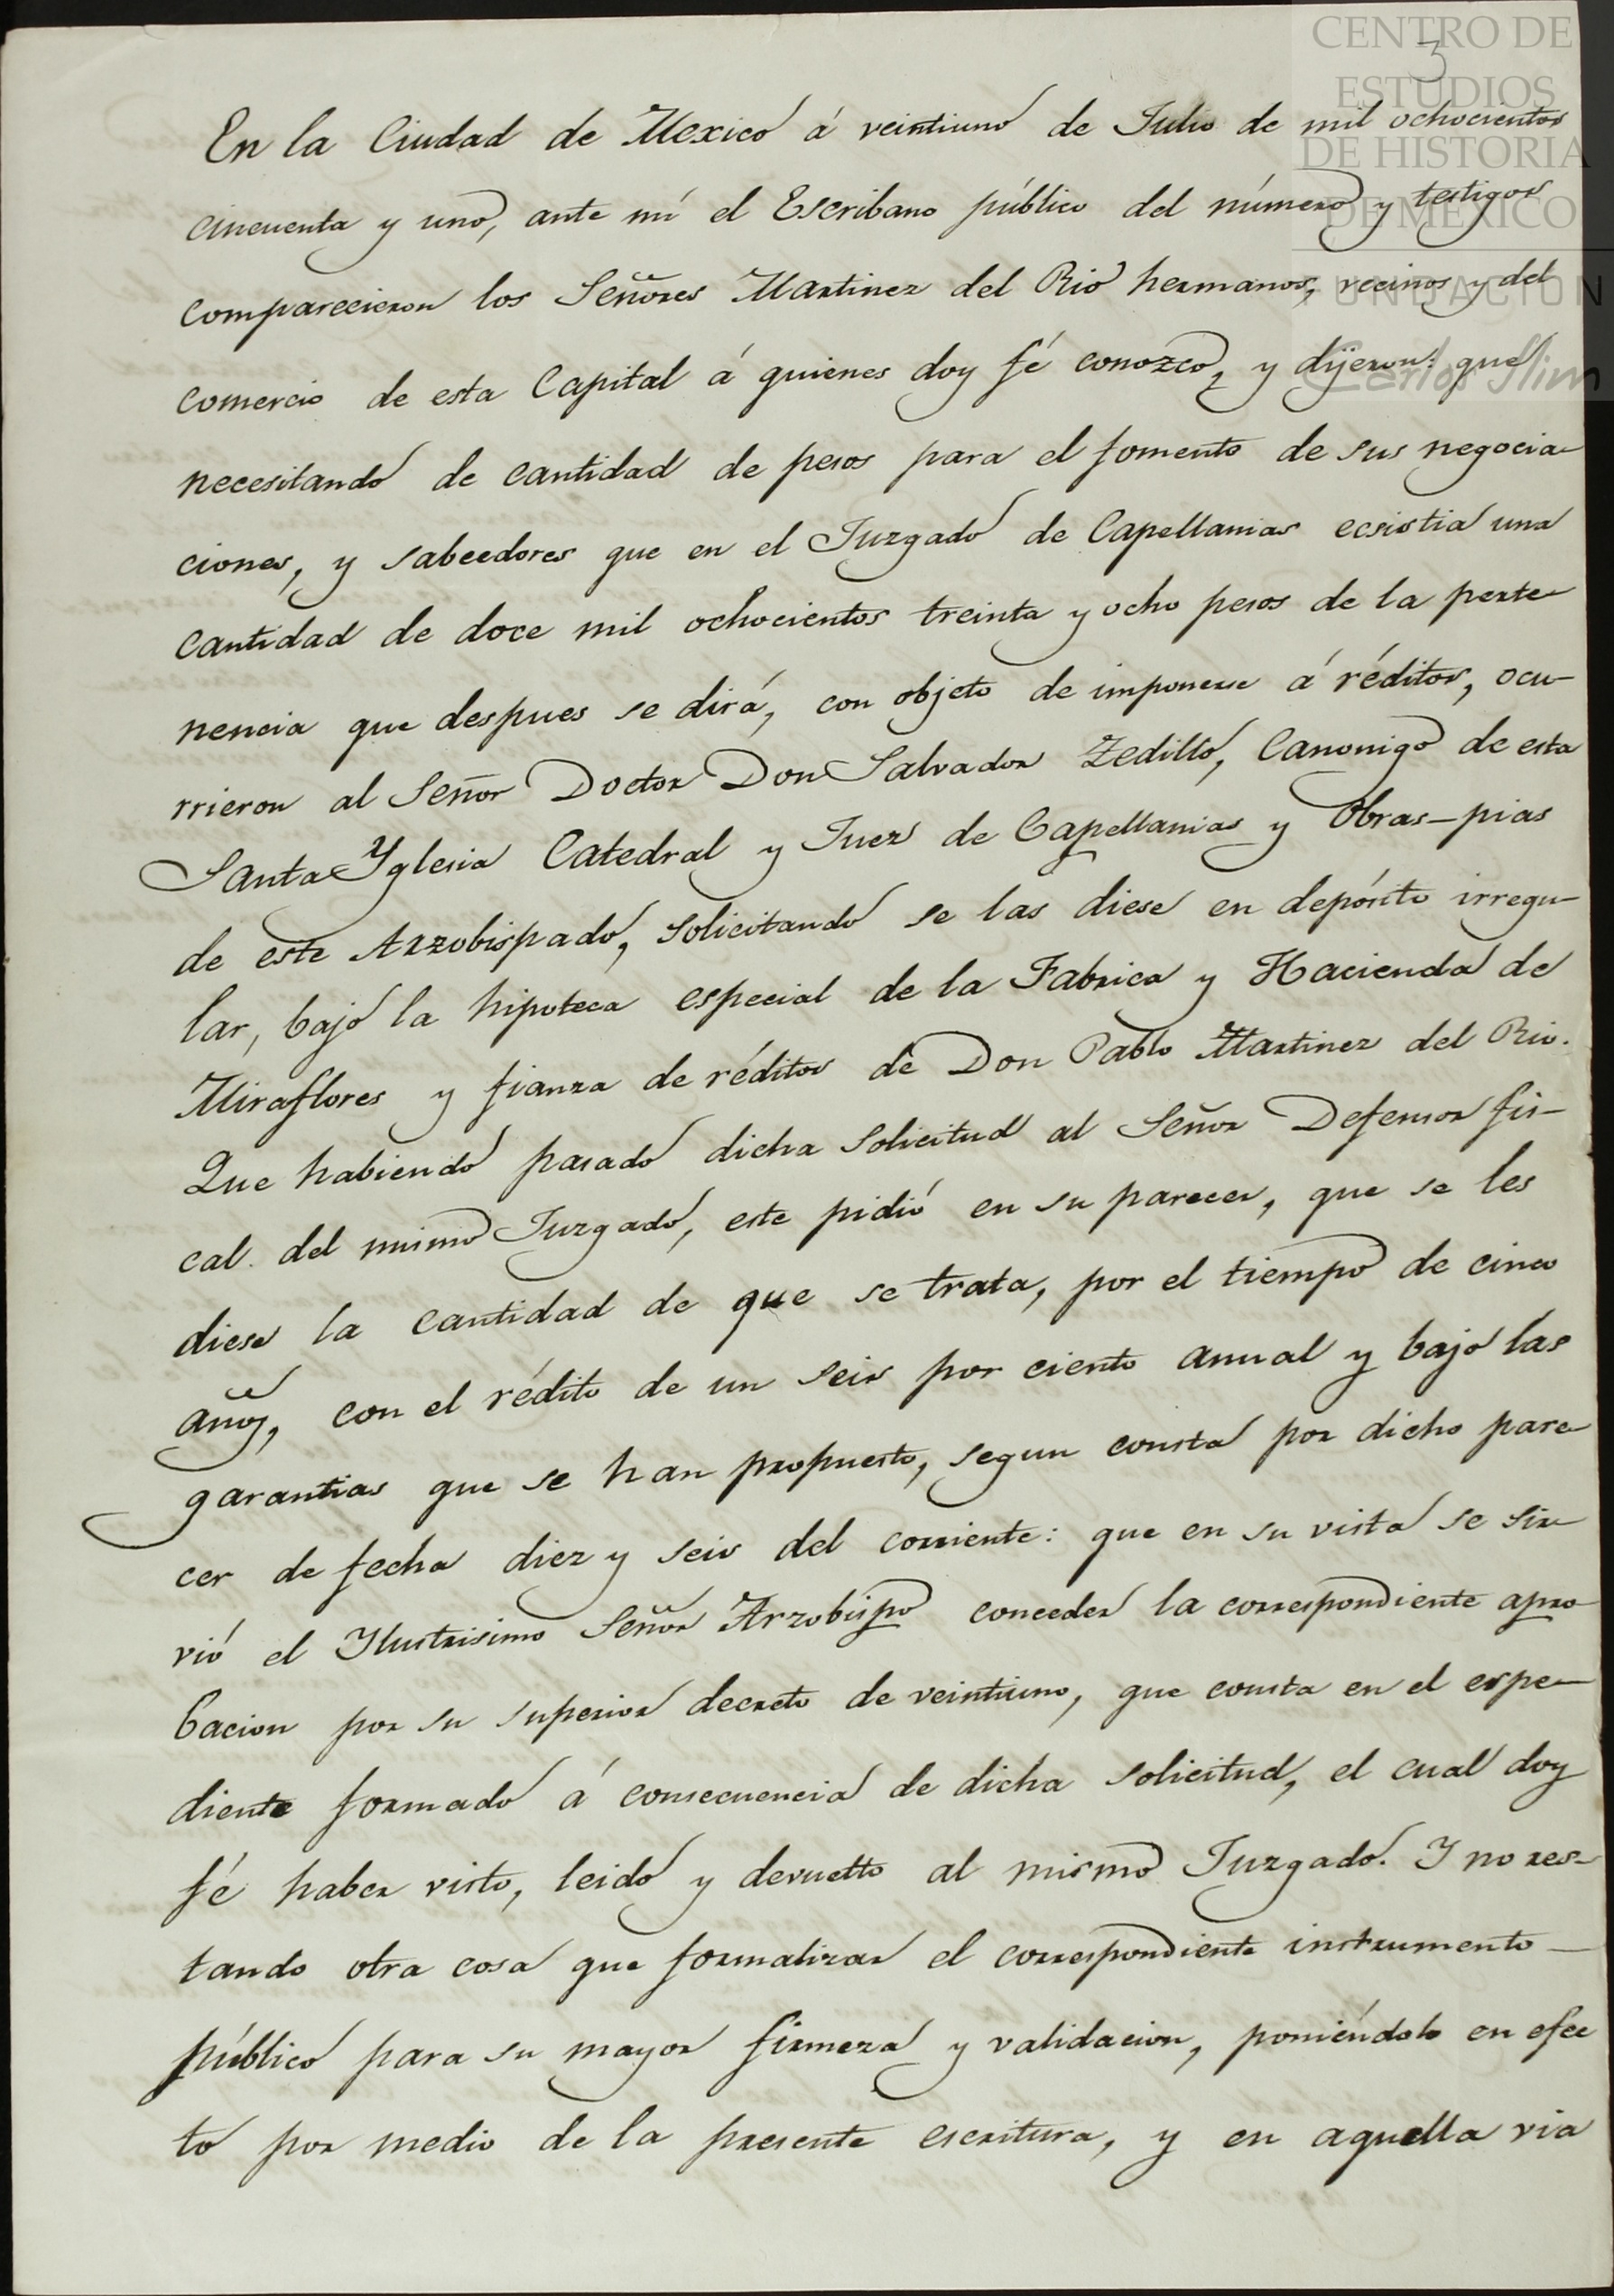 CENTRO DE
ESTUDIOS
DE HISTORIA
DE MÉXICO
FUNDACIÓN
Carlos Slim
3
En la Ciudad de Mexico á veintiuno de Julio de mil ochocientos
cincuenta y uno, ante mí el Escribano público del número y testigos
comparecieron los Señores Martinez del Rio hermanos, vecinos y del
comercio de esta Capital á quienes doy fé conozco, y dijeron: que
necesitando de cantidad de pesos para el fomento de sus negocia-
ciones, y sabeedores que en el Juzgado de Capellanias ecsistia una
cantidad de doce mil ochocientos treinta y ocho pesos de la perte-
nencia que despues se dirá, con objeto de imponerse á réditos, ocu-
rrieron al Señor Doctor Don Salvador Zedillo, Canonigo de esta
Santa Yglesia Catedral y Juez de Capellanias y Obras-pias
de este Arzobispado, solicitando se las diese en depósito irregu-
lar, bajo la hipoteca especial de la Fabrica y Hacienda de
Miraflores y fianza de réditos de Don Pablo Martinez del Rio.
Que habiendo pasado dicha solicitud al Señor Defensor fis-
cal del mismo Juzgado, este pidió en su parecer, que se les
diese la cantidad de que se trata, por el tiempo de cinco
años, con el rédito de un seis por ciento anual y bajo las
garantias que se han propuesto, segun consta por dicho pare-
cer de fecha diez y seis del corriente: que en su vista se sir-
vió el Ylustrisimo Señor Arzobispo conceder la correspondiente apro-
bacion por su superior decreto de veintiuno, que consta en el espe-
diente formado á consecuencia de dicha solicitud, el cual doy
fé haber visto, leido y devuelto al mismo Juzgado. Y no res-
tando otra cosa que formalizar el correspondiente instrumento
público para su mayor firmeza y validacion, poniéndolo en efec
to por medio de la presente escritura, y en aquella via